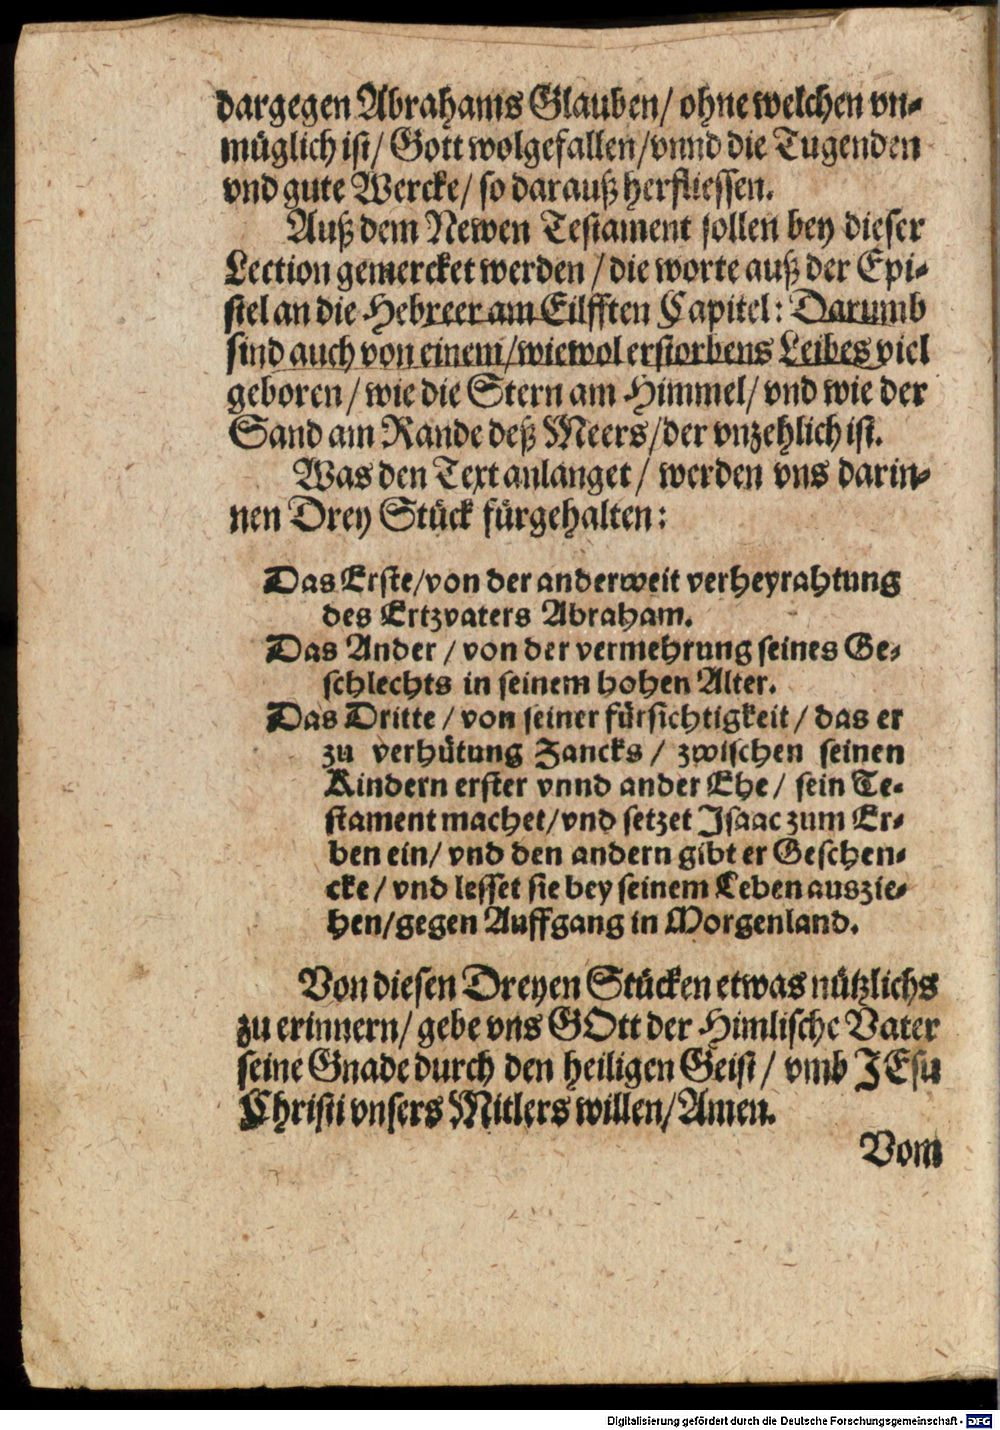 dargegen Abrahams Glauben/ ohne welchen vn-
müglich ist/ Gott wolgefallen/ vnnd die Tugenden
vnd gute Wercke/ so darauß herfliessen.
Auß dem Newen Testament sollen bey dieser
Lection gemercket werden / die worte auß der Epi-
stel an die Hebreer am Eilfften Capitel: Darumb
sind auch von einem/ wiewol erstorbens Leibes viel
geboren / wie die Stern am Himmel/ vnd wie der
Sand am Rande deß Meers/ der vnzehlich ist.
Was den Text anlanget / werden vns darin-
nen Drey Stück fürgehalten:
Das Erste/ von der anderweit verheyrahtung
des Ertzvaters Abraham.
Das Ander / von der vermehrung seines Ge-
schlechts in seinem hohen Alter.
Das Dritte / von seiner fürsichtigkeit / das er
zu verhütung Zancks / zwischen seinen
Kindern erster vnnd ander Ehe / sein Te-
stament machet/ vnd setzet Isaac zum Er-
ben ein/ vnd den andern gibt er Geschen-
cke / vnd lesset sie bey seinem Leben auszie-
hen/ gegen Auffgang in Morgenland.
Von diesen Dreyen Stücken etwas nützlichs
zu erinnern/ gebe vns GOtt der Himlische Vater
seine Gnade durch den heiligen Geist / vmb JEsu
Christi vnsers Mitlers willen/ Amen.
Vom
Digitalisierung gefördert durch die Deutsche Forschungsgemeinschaft - DFG